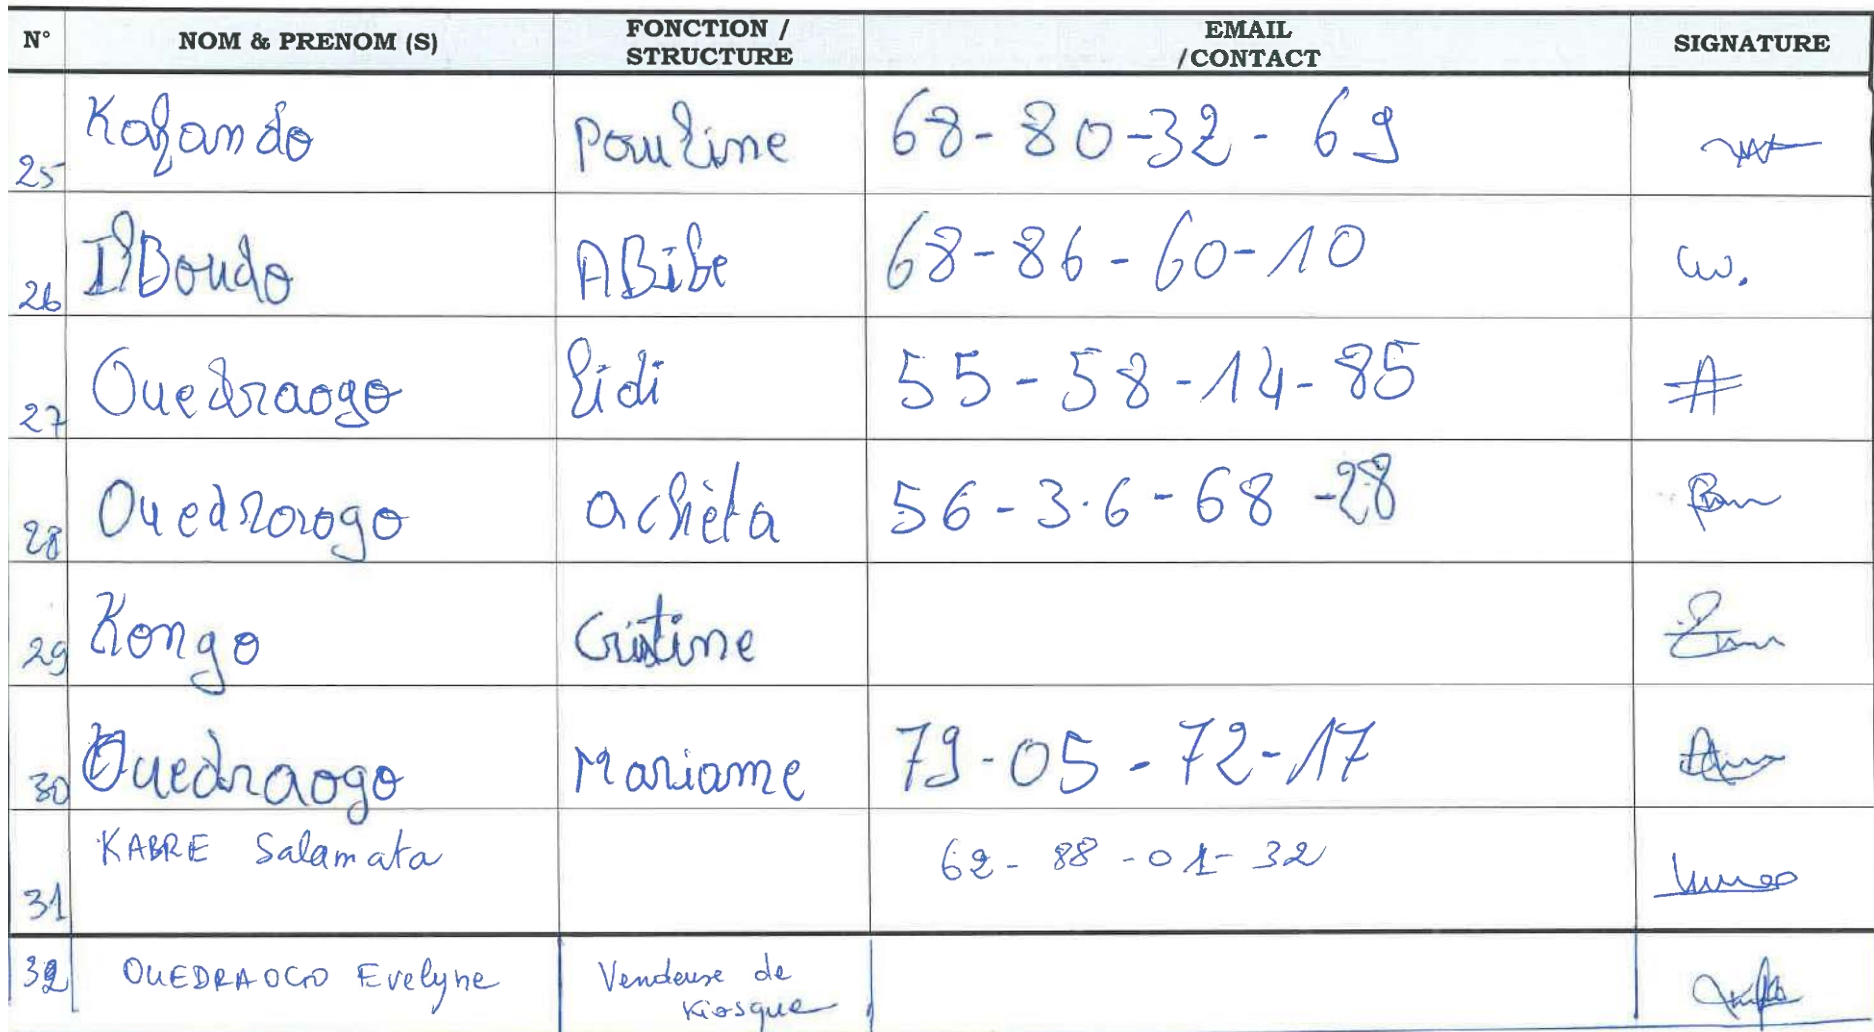 N° NOM & PRENOM (S) FONCTION / STRUCTURE EMAIL /CONTACT SIGNATURE
25 Kafando Pauline 68-80-32-69
26 IlBoudo ABibe 68-86-60-10
27 Ouedraogo lidi 55-58-14-85
28 Ouedraogo achèta 56-3.6-68-28
29 Kongo Cristine
30 Ouedraogo Mariame 79-05-72-17
31 KABRE Salamata 62-88-01-32
32 OUEDRAOGO Evelyne Vendeuse de
Kiosque